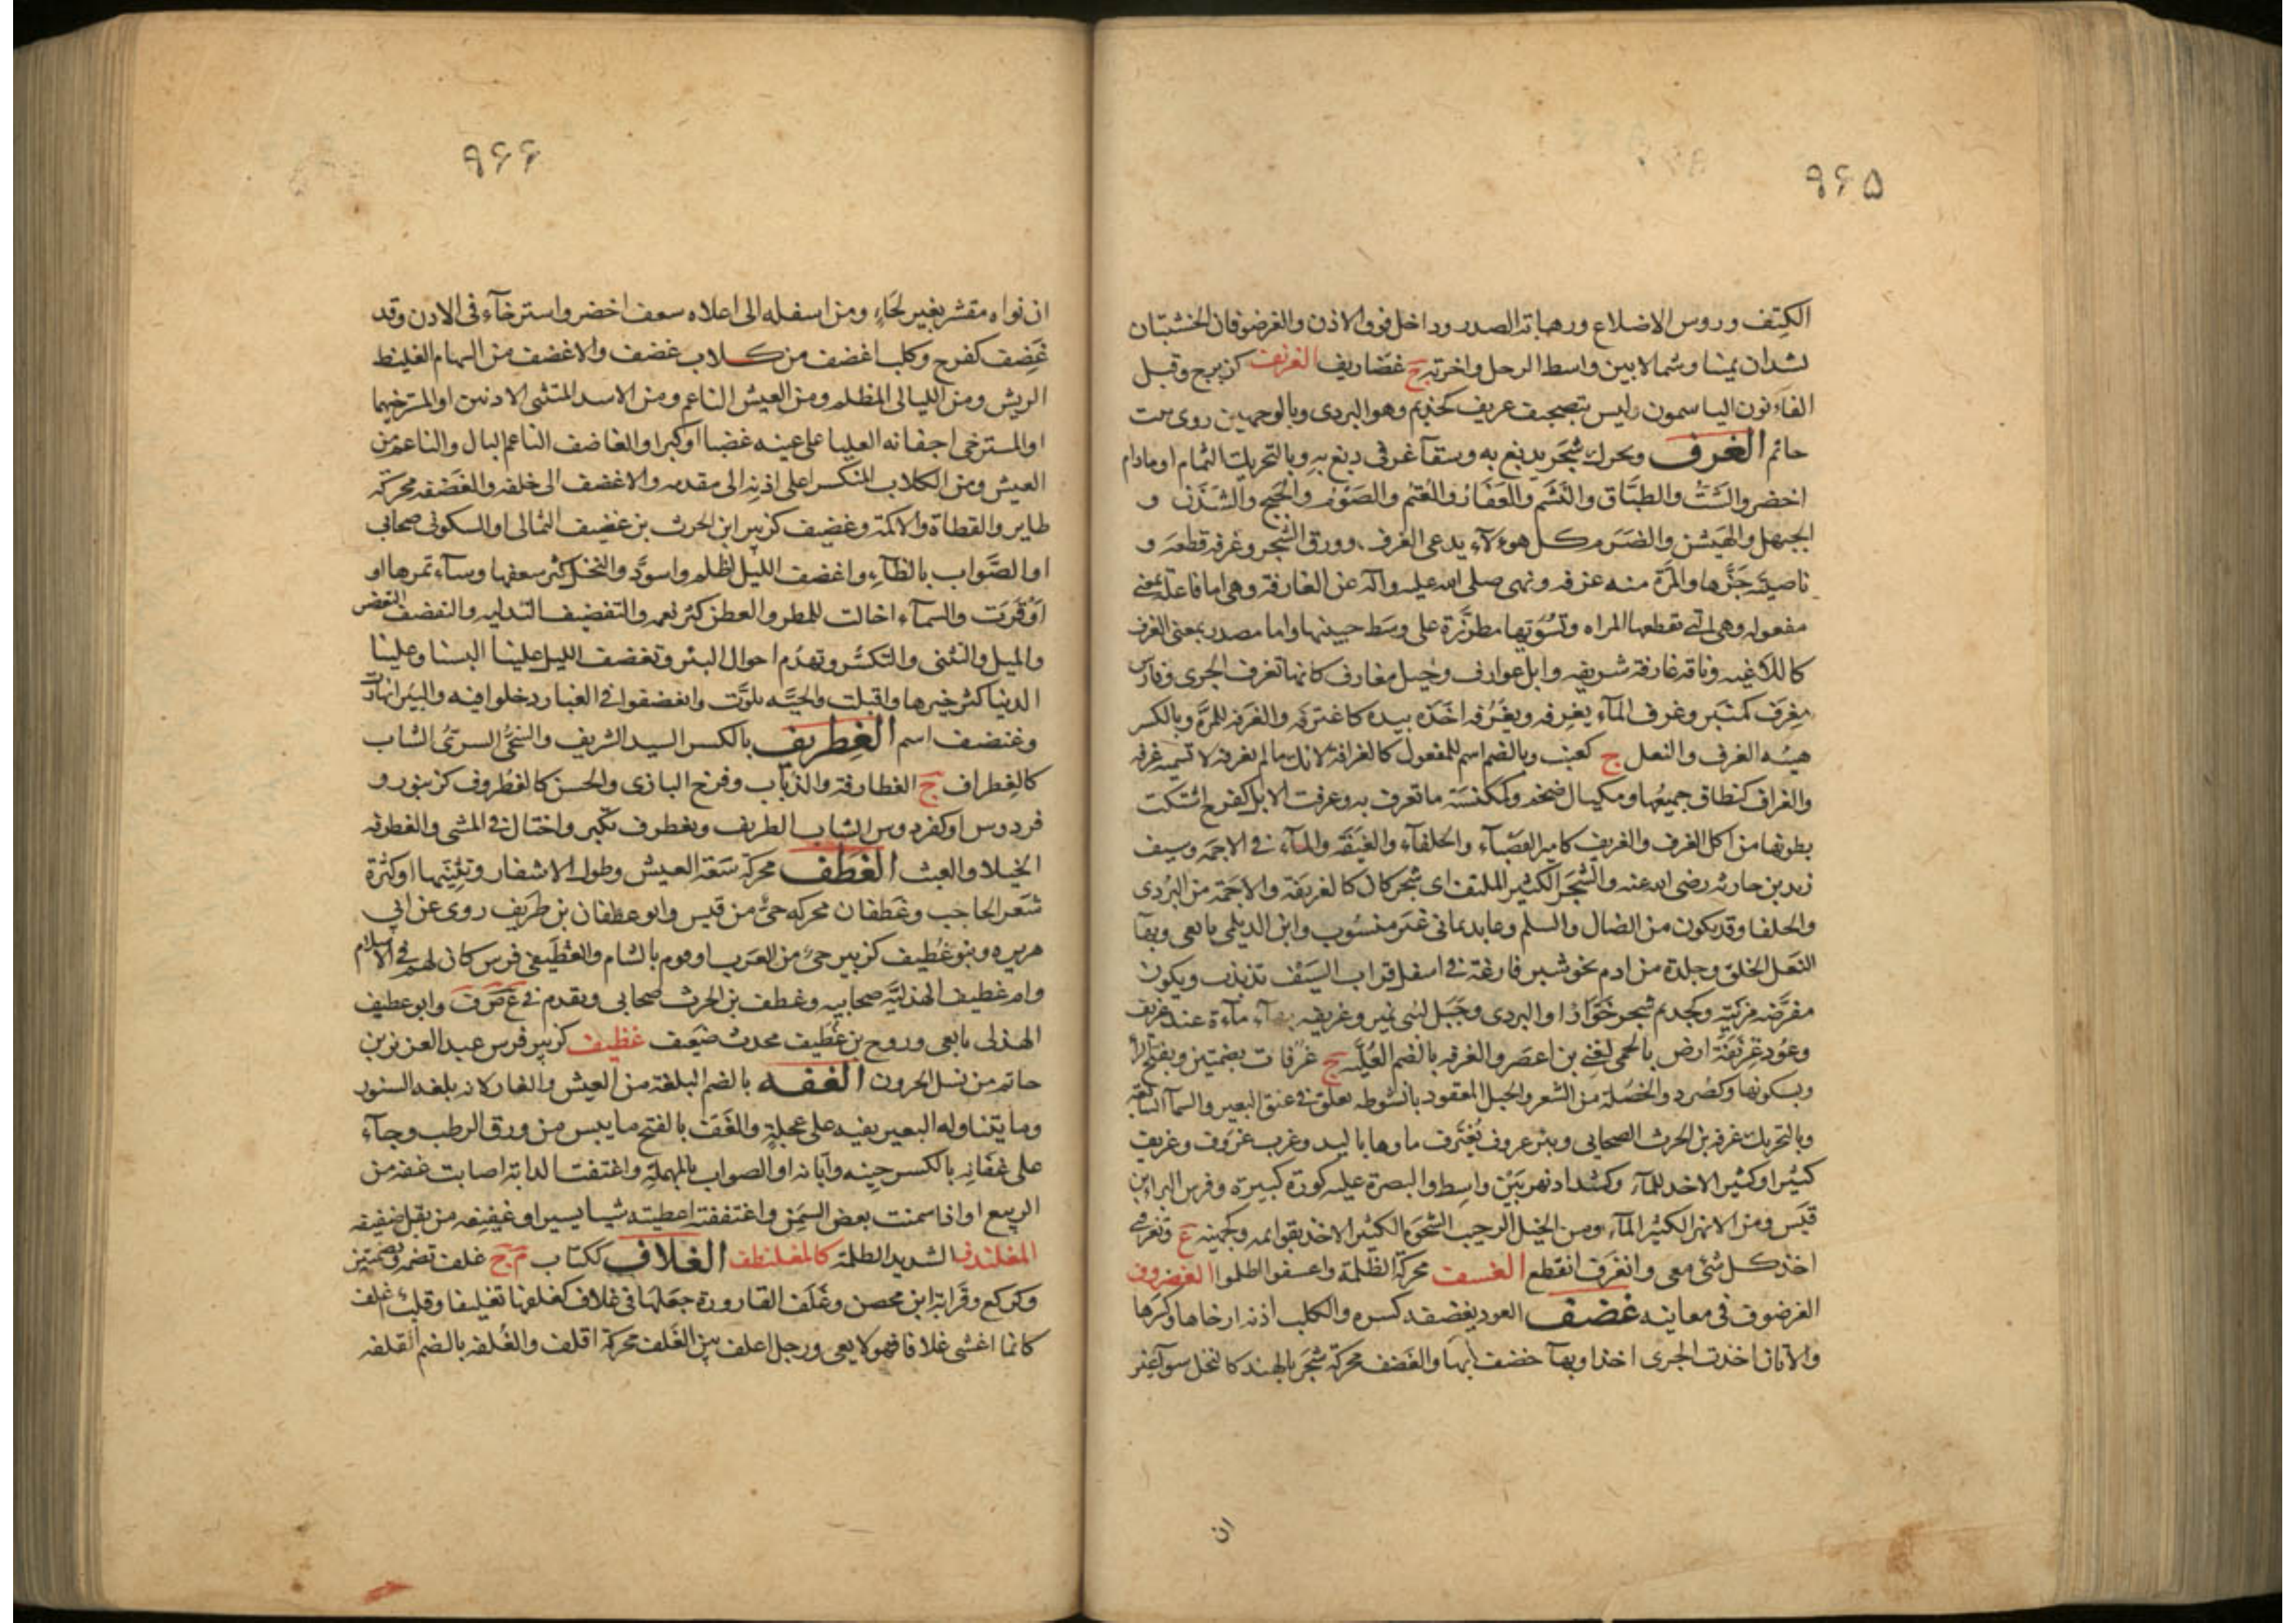 ٩۶۵
الكتف وروس الاضلاع ورهابة الصدر وداخل فوق الاذن والغرضوفان الخشبتان
تشدان يمينا وشمالا بين واسط الرحل واخرته ج غضاريف الغرنف كزبرج وقبل
الفاء نون الياسمون وليس بتصحيف عريف كخذيم وهو البردى وبالوجهين روى بيت
حاتم الغرف ويحرك شجر يدبغ به وسقآء غرفى دبغ به وبالتحريك الثمام او مادام
اخضر والشث والطباق والنشم والعفار والعتم والصوم والحبج والشدن و
الجيهل والهيشر والضرم كل هؤلاء يدعى الغرف وورق الشجر وغرفه قطعه و
ناصيته جزها والمرة منه غرفه ونهى صلى الله عليه وآله عن الغارفة وهى اما فاعلة بمعنى
مفعوله وهى التى تقطعها المراه وتسويها مطرزة على وسط جبينها واما مصدر بمعنى الغرف
كاللاغيه وناقه غارفة سريعه وابل غوارف وخيل مغارف كانها تغرف الجرى وفارس
مغرف كمنبر وغرف المآء يغرفه ويغرفه اخذه بيده كاغترفه والغرفه للمرة وبالكسر
هيئه الغرف والنعل ج كعنب وبالضم اسم للمفعول كالغرافة لانك ما لم تغرفه لا تسميه غرفه
والغراف كنطاف جمعها ومكيال ضخم وكمكنسة ما تغرف به وغرفت الابل كفرح اشتكت
بطونها من اكل الغرف والغريف كامير القصبآء والحلفآء والغيضة والمآء فى الاجمة وسيف
زيد بن حارثه رضى الله عنه والشجر الكثير الملتف اى شجر كان كالغريفة والاجمة من البردى
والحلفا وقد يكون من الضال والسلم وعابد يمانى غير منسوب وابن الديلمى تابعى وبهآء
النعل الخلق وجلدة من ادم نحو شبر فارغة فى اسفل قراب السيف تذبذب ويكون
مفرضه مزينه وكجديم شجر خوار او البردى وجبل لبنى نمير وغريفه بهآء مآءة عند غريف
وعمود غريفة ارض بالحمى لغنى بن اعصر والغرفه بالضم العلية ج غرفات بضمتين وبفتح الرا
وبسكونها وكصرد والخصلة من الشعر والحبل المعقود بانشوطه يعلق فى عنق البعير والسمآ السابعة
وبالتحريك غرفه بن الحرث الصحابى وبئر غروف تغترف ماوها باليد وغرب غروف وغريف
كبير او كثير الاخد للمآء وكشداد نهر بين واسط والبصرة عليه كورة كبيرة وفرس البراء بن
قيس ومن الانهر الكثير المآء ومن الخيل الرحيب الشحوة الكثير الاخذ بقوايمه وكجهينه ع وتغرفنى
اخذ كل شئ معى وانغرف انقطع الغسف محركة الظلمة واغسفوا اظلموا الغضروف
الغرضوف فى معانيه غضف العود يغضفه كسره والكلب اذنه ارخاها وكسرها
والاتان اخذت الجرى اخذا وبهآ خضف بها والغضف محركة شجر بالهند كالنخل سوآء غير
ان
٩۶۶
ان نواه مقشر بغير لحاء ومن اسفله الى اعلاه سعف اخضر واسترخآء فى الاذن وقد
غضف كفرح وكلب اغضف من كلاب غضف والاغضف من السهام الغليظ
الريش ومن الليالى المظلم ومن العيش الناعم ومن الاسد المتثنى الاذنين او المسترخيهما
او المسترخى اجفانه العليا على عينه غضبا او كبرا والغاضف الناعم البال والناعم من
العيش ومن الكلاب المنكسر اعلى اذنه الى مقدمه والاغضف الى خلفه والغضفه محركة
طاير والقطاة والاكمة وغضيف كزبير ابن الحرث بن غضيف الثمالى او السكونى صحابى
او الصواب بالظآء واغضف الليل اظلم واسود والنخل كثر سعفها وسآء ثمرها او
اوقرت والسمآء اخالت للمطر والعطن كثر نعمه والتغضيف التدليه والتغضف التغضن
والميل والتثنى والتكسر وتهدم احوال البئر وتغضف الليل علينا البسنا وعلينا
الدنيا كثر خيرها واقبلت والحيه تلوت وانغضفوا فى الغبار دخلوا فيه والبئر انهارت
وغنضف اسم الغطريف بالكسر السيد الشريف والسخى السرى الشاب
كالغطراف ج الغطارفة والذباب وفرخ البازى والحسن كالغطروف كزنبور و
فردوس او كفردوس الشاب الظريف وتغطرف تكبر واختال فى المشى والغطرفه
الخيلا والعبث الغطف محركة سعة العيش وطول الاشفار وتثنيها او كثرة
شعر الحاجب وغطفان محركه حى من قيس وابو غطفان بن طريف روى عن ابى
هريره وبنو غطيف كزبير حى من العرب او قوم بالشام والغطيفى فرس كان لهم فى الاسلام
وام غطيف الهذلية صحابيه وغطيف بن الحرث صحابى وتقدم فى غ ض ف وابو غطيف
الهذلى تابعى وروح بن غطيف محدث ضعيف غظيف كزبير فرس عبد العزيز بن
حاتم من نسل الحرون الغفه بالضم البلغة من العيش والفار لانه بلغه السنور
وما يتناوله البعير بفيه على عجلة والغف بالفتح ما يبس من ورق الرطب وجآء
على غفانه بالكسر حينه وابانه او الصواب بالمهملة واغتفت الدابة اصابت غفه من
الربيع او اذا سمنت بعض السمن واغتففته اعطيته شيا يسيرا وغفيفه من بقل ضغيفه
المغلندف الشديد الظلمة كالمغلنطف الغلاف ككتاب م ج غلف بضم وبضمتين
وكركع وقرابة ابن محصن وغلف القارورة جعلها فى غلاف كغلفها تغليفا وقلب اغلف
كانما اغشى غلافا فهو لا يعى ورجل اغلف بين الغلف محركة اقلف والغلفه بالضم القلفه